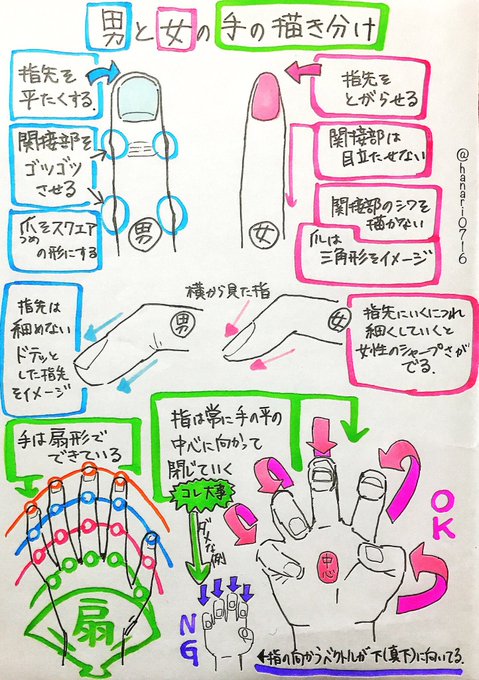 男と女の手の描き分け
指先を
平たくする
関接部を
ゴツゴツ
させる
爪をスクエア
つめ
の形にする
男
指先を
とがらせる
関接部は
目立たせない
関接部のシワを
描かない
爪は
三角形をイメージ
女
@hanari0716
横から見た指
指先は
細めない
ドテッと
した指先
をイメージ
男
女
指先にいくにつれ
細くしていくと
女性のシャープさが
でる.
手は扇形で
できている
扇
指は常に手の平の
中心に向かって
閉じていく
コレ大事
ダメな例
NG
OK
中心
←指の向かうベクトルが下(真下)に向いてる.